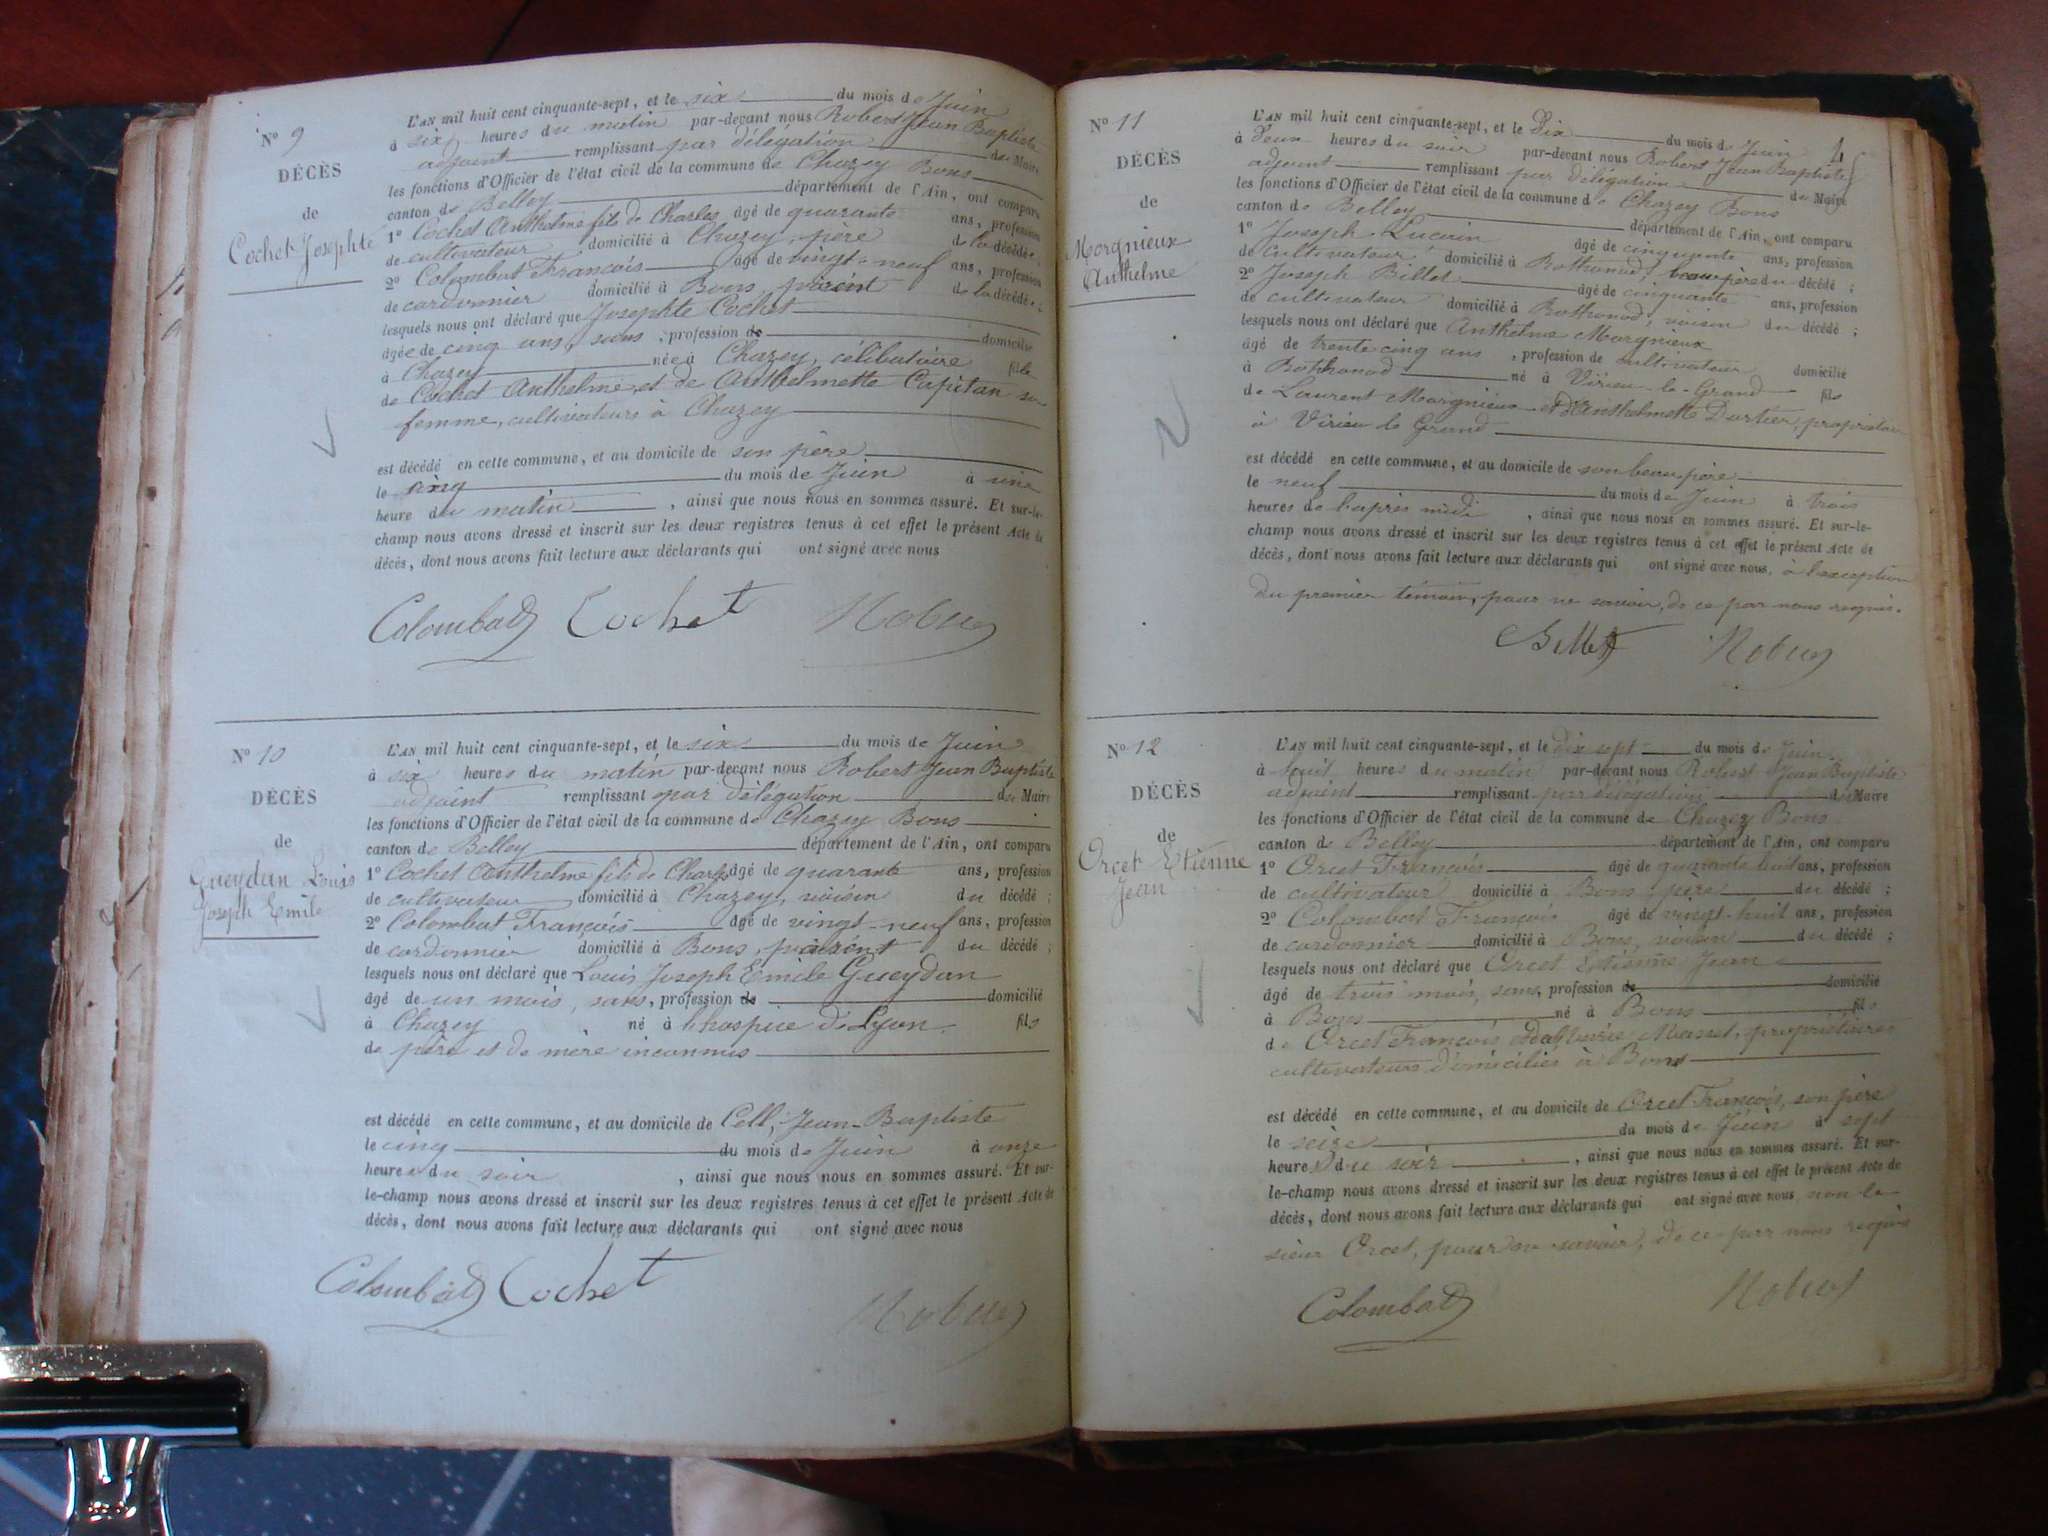 N° 9
DÉCÈS
de
Cochet Josephte
L'AN mil huit cent cinquante-sept, et le six du mois de Juin
à six heures du matin par-devant nous Robert Jean Baptiste
adjoint remplissant par délégation de Maire
les fonctions d'Officier de l'état civil de la commune de Chazey Bons
canton de Belley département de l'Ain, ont comparu
1° Cochet Anthelme fils de Charles âgé de quarante ans, profession
de cultivateur domicilié à Chazey, père de la décédée;
2° Colombat François âgé de vingt-neuf ans, profession
de cordonnier domicilié à Bons, parent de la décédée;
lesquels nous ont déclaré que Josephte Cochet
âgée de cinq ans, sans, profession de domicilié
à Chazey née à Chazey, célibataire fille
de Cochet Anthelme et de Anthelmette Capitan sa
femme, cultivateurs à Chazey
est décédé en cette commune, et au domicile de son père
le cinq du mois de Juin à une
heure du matin, ainsi que nous nous en sommes assuré. Et sur-le-
champ nous avons dressé et inscrit sur les deux registres tenus à cet effet le présent Acte de
décès, dont nous avons fait lecture aux déclarants qui ont signé avec nous
Colombat Cochet
N° 10
DÉCÈS
de
Gueydan Louis
Joseph Emile
L'AN mil huit cent cinquante-sept, et le six du mois de Juin
à six heures du matin par-devant nous Robert Jean Baptiste
adjoint remplissant par délégation de Maire
les fonctions d'Officier de l'état civil de la commune de Chazey Bons
canton de Belley département de l'Ain, ont comparu
1° Cochet Anthelme fils de Charles âgé de quarante ans, profession
de cultivateur domicilié à Chazey, voisin du décédé;
2° Colombat François âgé de vingt-neuf ans, profession
de cordonnier domicilié à Bons, parent du décédé;
lesquels nous ont déclaré que Louis Joseph Emile Gueydan
âgé de un mois, sans, profession de domicilié
à Chazey né à l'hospice de Lyon fils
de père et de mère inconnus
est décédé en cette commune, et au domicile de Cell, Jean-Baptiste
le cinq du mois de Juin à onze
heures du soir, ainsi que nous nous en sommes assuré. Et sur-
le-champ nous avons dressé et inscrit sur les deux registres tenus à cet effet le présent Acte de
décès, dont nous avons fait lecture aux déclarants qui ont signé avec nous
Colombat Cochet
4
N° 11
DÉCÈS
de
Morgnieux
Anthelme
L'AN mil huit cent cinquante-sept, et le Dix du mois de Juin
à deux heures du soir par-devant nous Robert Jean Baptiste
adjoint remplissant par délégation de Maire
les fonctions d'Officier de l'état civil de la commune de Chazey Bons
canton de Belley département de l'Ain, ont comparu
1° Joseph Lucain âgé de cinquante ans, profession
de cultivateur domicilié à Rothonod, beau père du décédé;
2° Joseph Billet âgé de cinquante ans, profession
de cultivateur domicilié à Rothonod, voisin du décédé;
lesquels nous ont déclaré que Anthelme Morgnieux
âgé de trente cinq ans, profession de cultivateur domicilié
à Rothonod né à Virieu-le-Grand fils
de Laurent Morgnieux et d'Anthelmette Durtier, propriétaires
à Virieu le Grand
est décédé en cette commune, et au domicile de son beau père
le neuf du mois de Juin à trois
heures de l'après midi, ainsi que nous nous en sommes assuré. Et sur-le-
champ nous avons dressé et inscrit sur les deux registres tenus à cet effet le présent Acte de
décès, dont nous avons fait lecture aux déclarants qui ont signé avec nous, à l'exception
du premier témoin, pour ne savoir, de ce par nous requis.
Billet
N° 12
DÉCÈS
de
Orcet Etienne
Jean
L'AN mil huit cent cinquante-sept, et le dix sept du mois de Juin
à huit heures du matin par-devant nous Robert Jean Baptiste
adjoint remplissant par délégation de Maire
les fonctions d'Officier de l'état civil de la commune de Chazey Bons
canton de Belley département de l'Ain, ont comparu
1° Orcet François âgé de quarante huit ans, profession
de cultivateur domicilié à Bons, père du décédé;
2° Colombat François âgé de vingt-huit ans, profession
de cordonnier domicilié à Bons, voisin du décédé;
lesquels nous ont déclaré que Orcet Etienne Jean
âgé de trois mois, sans, profession de domicilié
à Bons né à Bons fils
de Orcet François et de Marie Masset, propriétaires
cultivateurs domiciliés à Bons
est décédé en cette commune, et au domicile de Orcet François, son père
le seize du mois de Juin à sept
heures du soir, ainsi que nous nous en sommes assuré. Et sur-
le-champ nous avons dressé et inscrit sur les deux registres tenus à cet effet le présent Acte de
décès, dont nous avons fait lecture aux déclarants qui ont signé avec nous non le
sieur Orcet, pour ne savoir, de ce par nous requis
Colombat